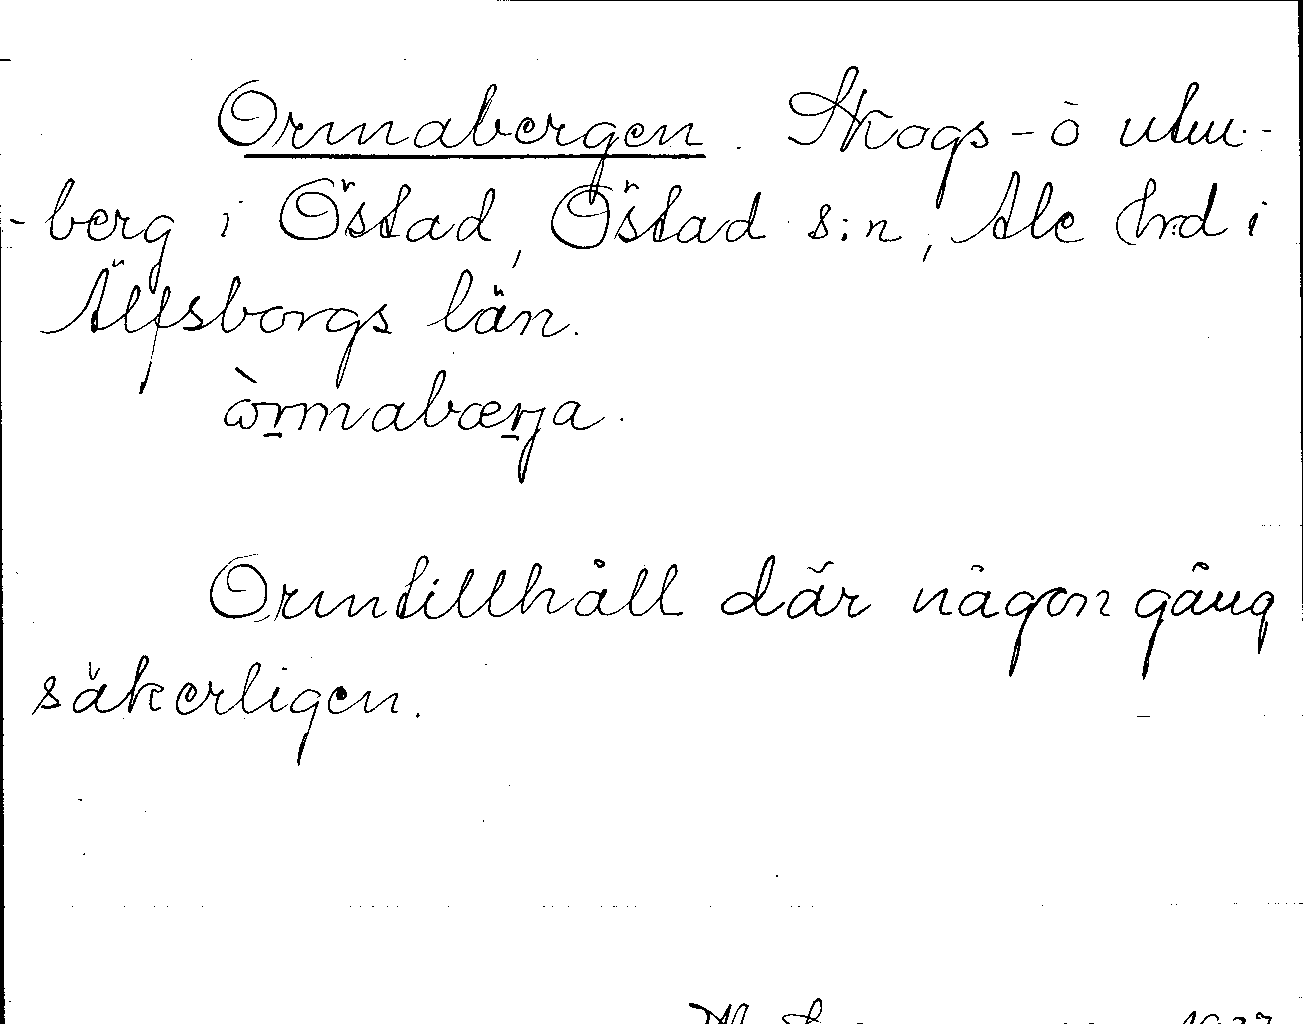 Ormabergen. Skogs- o utm.-
-berg i Östad, Östad s:n, Ale hrd i
Älfsborgs län.
òrmabærja.
Ormtillhåll där någon gång
säkerligen.